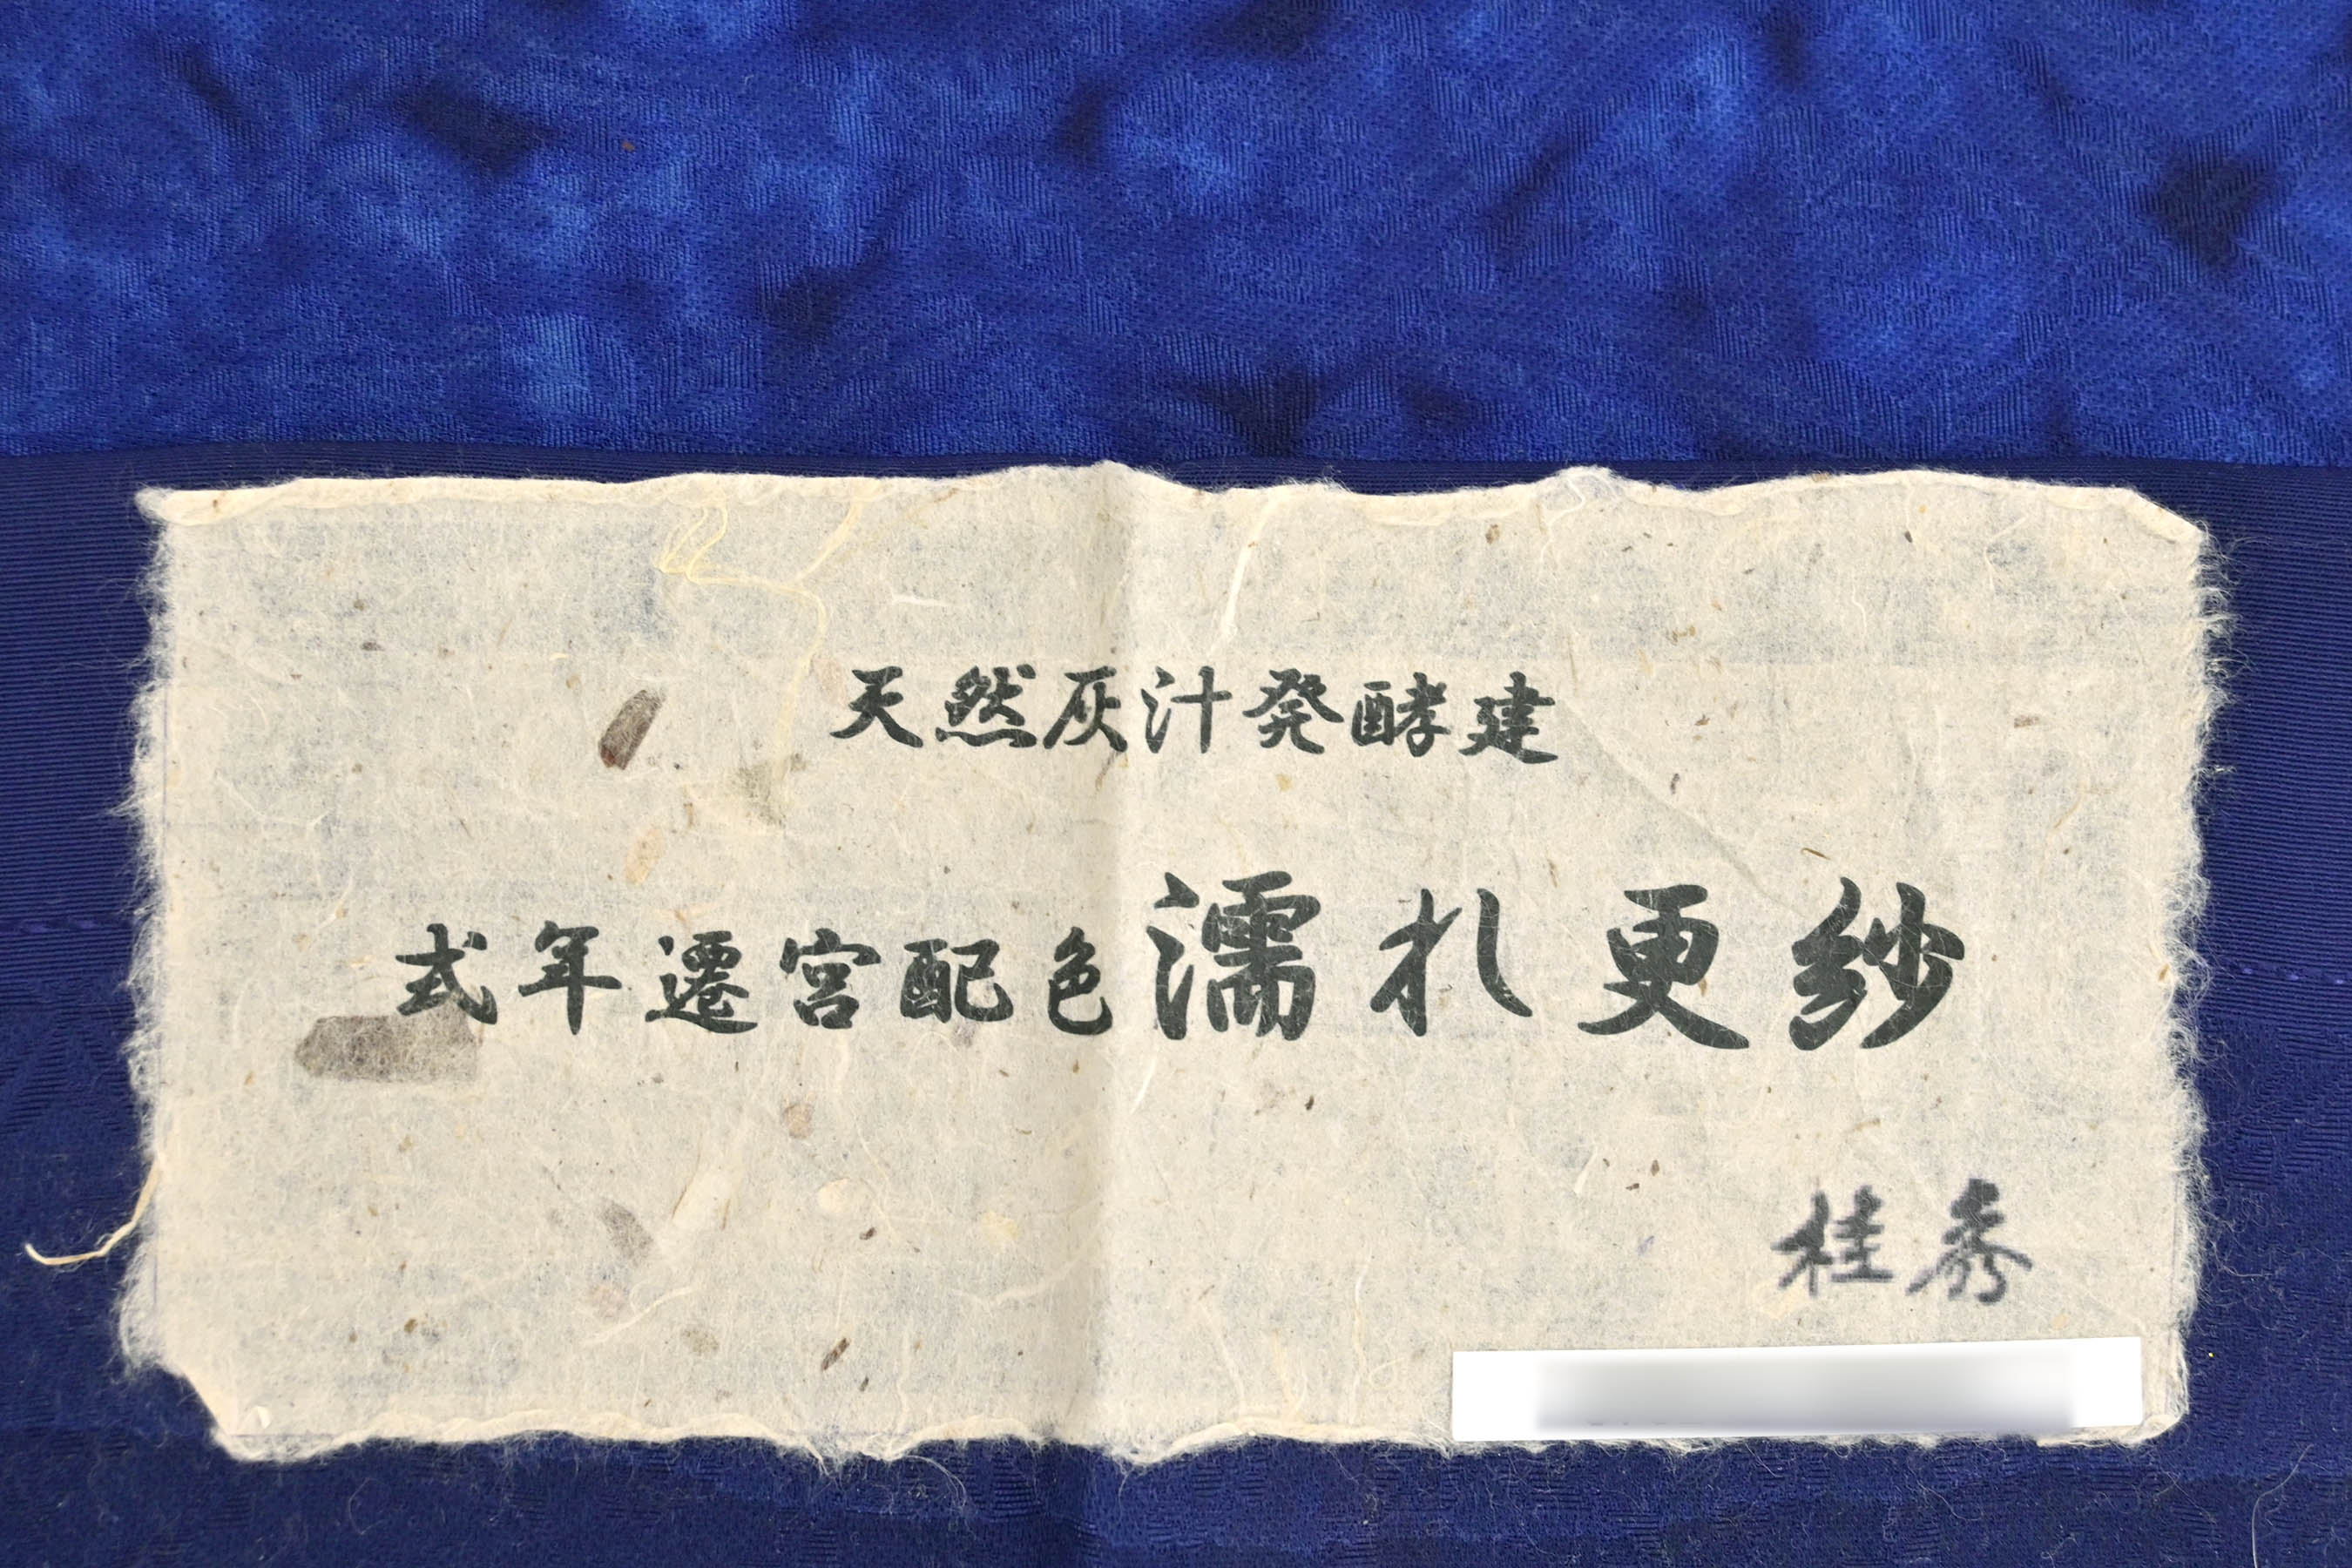 天然灰汁発酵建
式年遷宮配色濡札更紗
桂秀